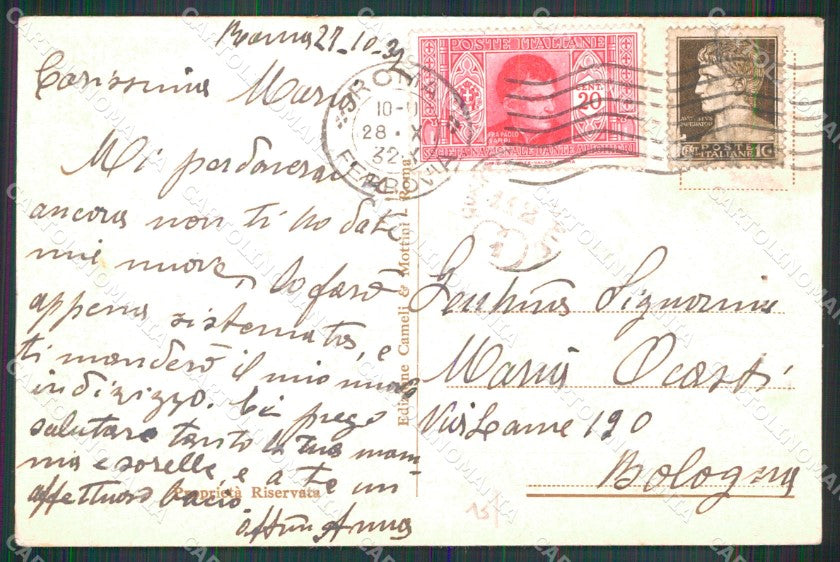 Roma 27-10-32
Carissima Maria
Mi perdonerai
ancora non ti ho dato
mie nuove, lo farò
appena sistemata, e
ti manderò il mio nuovo
indirizzo. Ti prego
salutare tanto la tua mam-
ma e sorelle e a te un
affettuoso bacio
aff.ma Anna
Proprietà Riservata
Edizione Cameli & Mottini - Roma
ROMA
28 · X
32
FERROVIA
POSTE ITALIANE
CENT. 20
FRA PAOLO SARPI
SOCIETÀ NAZIONALE DANTE ALIGHIERI
POSTE
ITALIANE
Signorina
Maria
Via Lame 190
Bologna
CARTOLINOMANIA